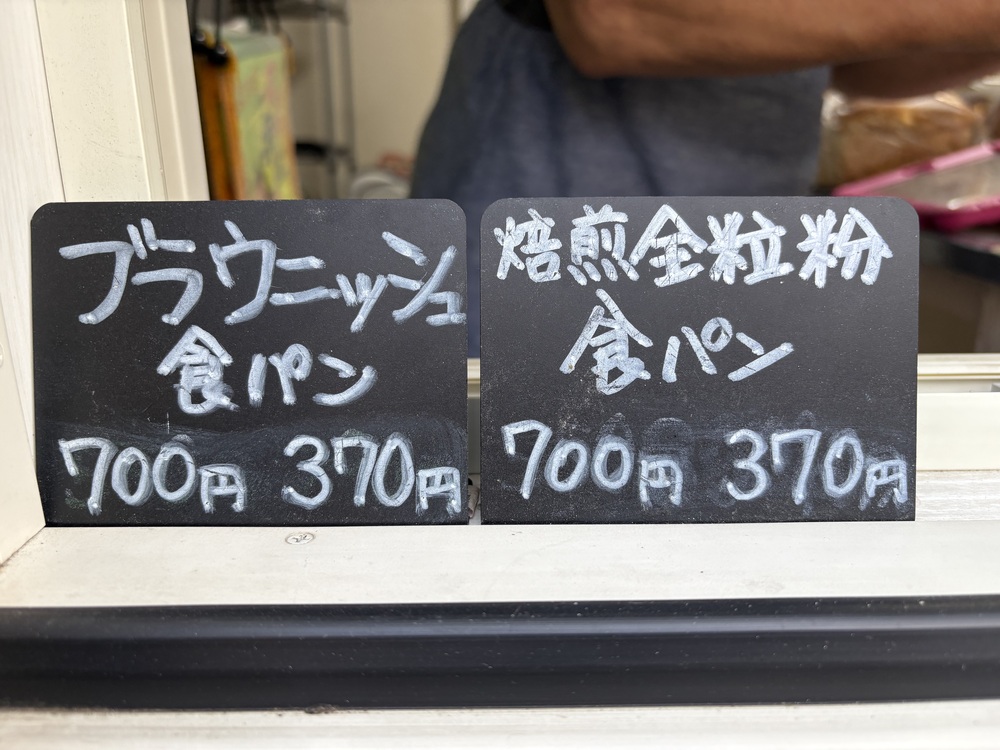 ブラウニッシュ
食パン
700円 370円
焙煎全粒粉
食パン
700円 370円